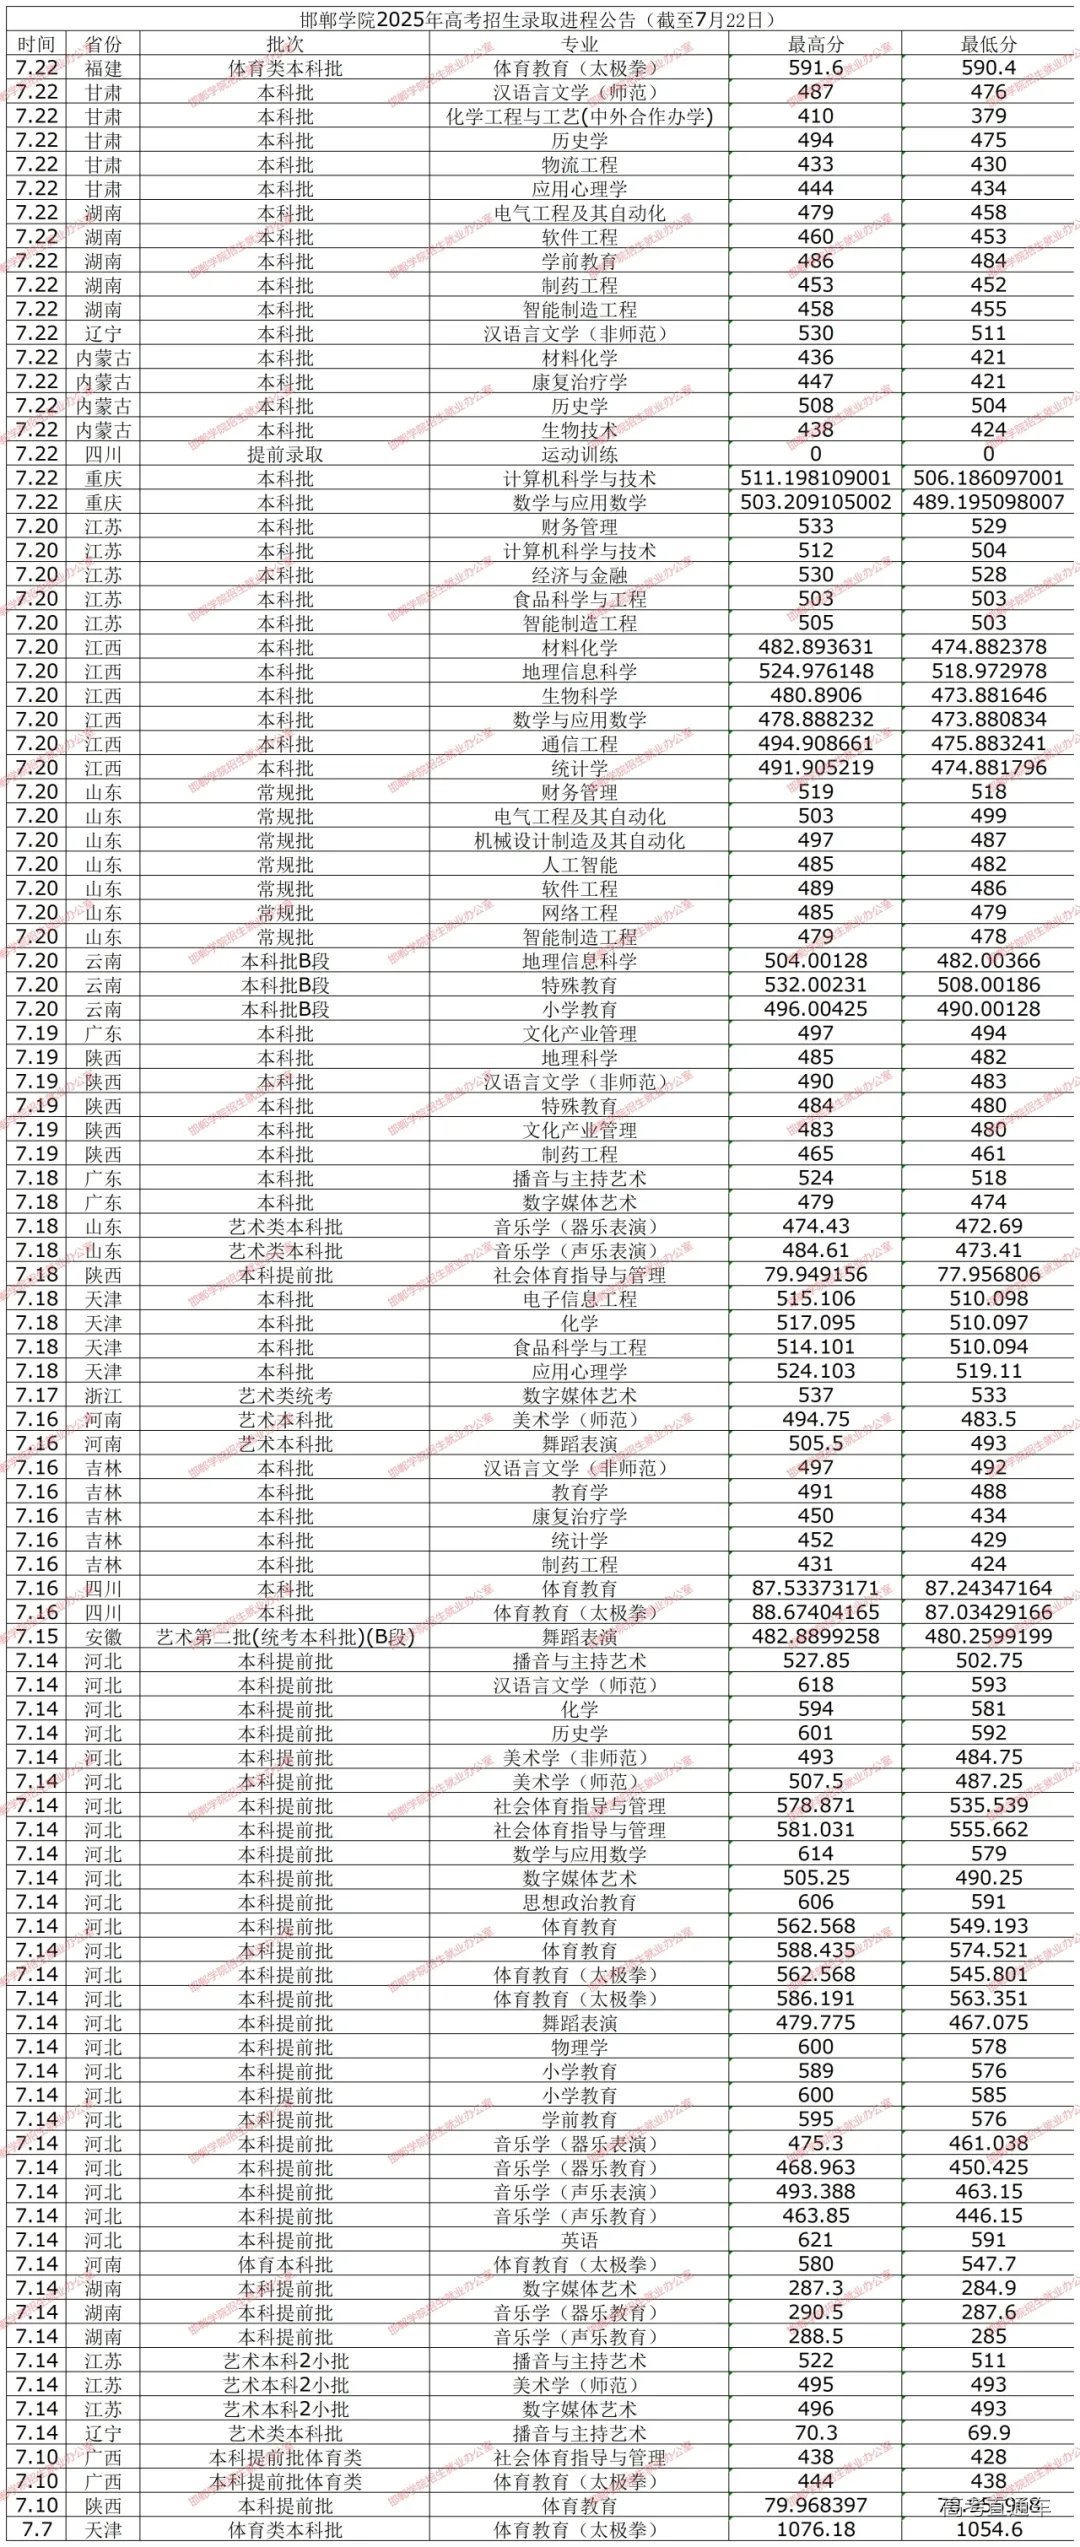 邯郸学院2025年高考招生录取进程公告（截至7月22日）
时间 省份 批次 专业 最高分 最低分
7.22 福建 体育类本科批 体育教育（太极拳） 591.6 590.4
7.22 甘肃 本科批 汉语言文学（师范） 487 476
7.22 甘肃 本科批 化学工程与工艺(中外合作办学) 410 379
7.22 甘肃 本科批 历史学 494 475
7.22 甘肃 本科批 物流工程 433 430
7.22 甘肃 本科批 应用心理学 444 434
7.22 湖南 本科批 电气工程及其自动化 479 458
7.22 湖南 本科批 软件工程 460 453
7.22 湖南 本科批 学前教育 486 484
7.22 湖南 本科批 制药工程 453 452
7.22 湖南 本科批 智能制造工程 458 455
7.22 辽宁 本科批 汉语言文学（非师范） 530 511
7.22 内蒙古 本科批 材料化学 436 421
7.22 内蒙古 本科批 康复治疗学 447 421
7.22 内蒙古 本科批 历史学 508 504
7.22 内蒙古 本科批 生物技术 438 424
7.22 四川 提前录取 运动训练 0 0
7.22 重庆 本科批 计算机科学与技术 511.198109001 506.186097001
7.22 重庆 本科批 数学与应用数学 503.209105002 489.195098007
7.20 江苏 本科批 财务管理 533 529
7.20 江苏 本科批 计算机科学与技术 512 504
7.20 江苏 本科批 经济与金融 530 528
7.20 江苏 本科批 食品科学与工程 503 503
7.20 江苏 本科批 智能制造工程 505 503
7.20 江西 本科批 材料化学 482.893631 474.882378
7.20 江西 本科批 地理信息科学 524.976148 518.972978
7.20 江西 本科批 生物科学 480.8906 473.881646
7.20 江西 本科批 数学与应用数学 478.888232 473.880834
7.20 江西 本科批 通信工程 494.908661 475.883241
7.20 江西 本科批 统计学 491.905219 474.881796
7.20 山东 常规批 财务管理 519 518
7.20 山东 常规批 电气工程及其自动化 503 499
7.20 山东 常规批 机械设计制造及其自动化 497 487
7.20 山东 常规批 人工智能 485 482
7.20 山东 常规批 软件工程 489 486
7.20 山东 常规批 网络工程 485 479
7.20 山东 常规批 智能制造工程 479 478
7.20 云南 本科批B段 地理信息科学 504.00128 482.00366
7.20 云南 本科批B段 特殊教育 532.00231 508.00186
7.20 云南 本科批B段 小学教育 496.00425 490.00128
7.19 广东 本科批 文化产业管理 497 494
7.19 陕西 本科批 地理科学 485 482
7.19 陕西 本科批 汉语言文学（非师范） 490 483
7.19 陕西 本科批 特殊教育 484 480
7.19 陕西 本科批 文化产业管理 483 480
7.19 陕西 本科批 制药工程 465 461
7.18 广东 本科批 播音与主持艺术 524 518
7.18 广东 本科批 数字媒体艺术 479 474
7.18 山东 艺术类本科批 音乐学（器乐表演） 474.43 472.69
7.18 山东 艺术类本科批 音乐学（声乐表演） 484.61 473.41
7.18 陕西 本科提前批 社会体育指导与管理 79.949156 77.956806
7.18 天津 本科批 电子信息工程 515.106 510.098
7.18 天津 本科批 化学 517.095 510.097
7.18 天津 本科批 食品科学与工程 514.101 510.094
7.18 天津 本科批 应用心理学 524.103 519.11
7.17 浙江 艺术类统考 数字媒体艺术 537 533
7.16 河南 艺术本科批 美术学（师范） 494.75 483.5
7.16 河南 艺术本科批 舞蹈表演 505.5 493
7.16 吉林 本科批 汉语言文学（非师范） 497 492
7.16 吉林 本科批 教育学 491 488
7.16 吉林 本科批 康复治疗学 450 434
7.16 吉林 本科批 统计学 452 429
7.16 吉林 本科批 制药工程 431 424
7.16 四川 本科批 体育教育 87.53373171 87.24347164
7.16 四川 本科批 体育教育（太极拳） 88.67404165 87.03429166
7.15 安徽 艺术第二批(统考本科批)(B段) 舞蹈表演 482.8899258 480.2599199
7.14 河北 本科提前批 播音与主持艺术 527.85 502.75
7.14 河北 本科提前批 汉语言文学（师范） 618 593
7.14 河北 本科提前批 化学 594 581
7.14 河北 本科提前批 历史学 601 592
7.14 河北 本科提前批 美术学（非师范） 493 484.75
7.14 河北 本科提前批 美术学（师范） 507.5 487.25
7.14 河北 本科提前批 社会体育指导与管理 578.871 535.539
7.14 河北 本科提前批 社会体育指导与管理 581.031 555.662
7.14 河北 本科提前批 数学与应用数学 614 579
7.14 河北 本科提前批 数字媒体艺术 505.25 490.25
7.14 河北 本科提前批 思想政治教育 606 591
7.14 河北 本科提前批 体育教育 562.568 549.193
7.14 河北 本科提前批 体育教育 588.435 574.521
7.14 河北 本科提前批 体育教育（太极拳） 562.568 545.801
7.14 河北 本科提前批 体育教育（太极拳） 586.191 563.351
7.14 河北 本科提前批 舞蹈表演 479.775 467.075
7.14 河北 本科提前批 物理学 600 578
7.14 河北 本科提前批 小学教育 589 576
7.14 河北 本科提前批 小学教育 600 585
7.14 河北 本科提前批 学前教育 595 576
7.14 河北 本科提前批 音乐学（器乐表演） 475.3 461.038
7.14 河北 本科提前批 音乐学（器乐教育） 468.963 450.425
7.14 河北 本科提前批 音乐学（声乐表演） 493.388 463.15
7.14 河北 本科提前批 音乐学（声乐教育） 463.85 446.15
7.14 河北 本科提前批 英语 621 591
7.14 河南 体育本科批 体育教育（太极拳） 580 547.7
7.14 湖南 本科提前批 数字媒体艺术 287.3 284.9
7.14 湖南 本科提前批 音乐学（器乐教育） 290.5 287.6
7.14 湖南 本科提前批 音乐学（声乐教育） 288.5 285
7.14 江苏 艺术本科2小批 播音与主持艺术 522 511
7.14 江苏 艺术本科2小批 美术学（师范） 495 493
7.14 江苏 艺术本科2小批 数字媒体艺术 496 493
7.14 辽宁 艺术类本科批 播音与主持艺术 70.3 69.9
7.10 广西 本科提前批体育类 社会体育指导与管理 438 428
7.10 广西 本科提前批体育类 体育教育（太极拳） 444 438
7.10 陕西 本科提前批 体育教育 79.968397
高考直通车
7.7 天津 体育类本科批 体育教育（太极拳） 1076.18 1054.6
邯郸学院招生就业办公室